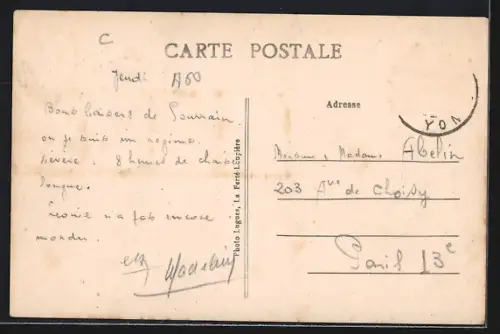 C
CARTE POSTALE
Jeudi A60
Bons baisers de Pourrain
où je suis un régime
sévère. 8 heures de chaise
longue.
Léonie n'a pas encore
mordu.
Madeleine
Photo Lugues, La Ferté-Loupière
Adresse
YON
Monsieur, Madame Abelin
203 Ave de Choisy
Paris 13e